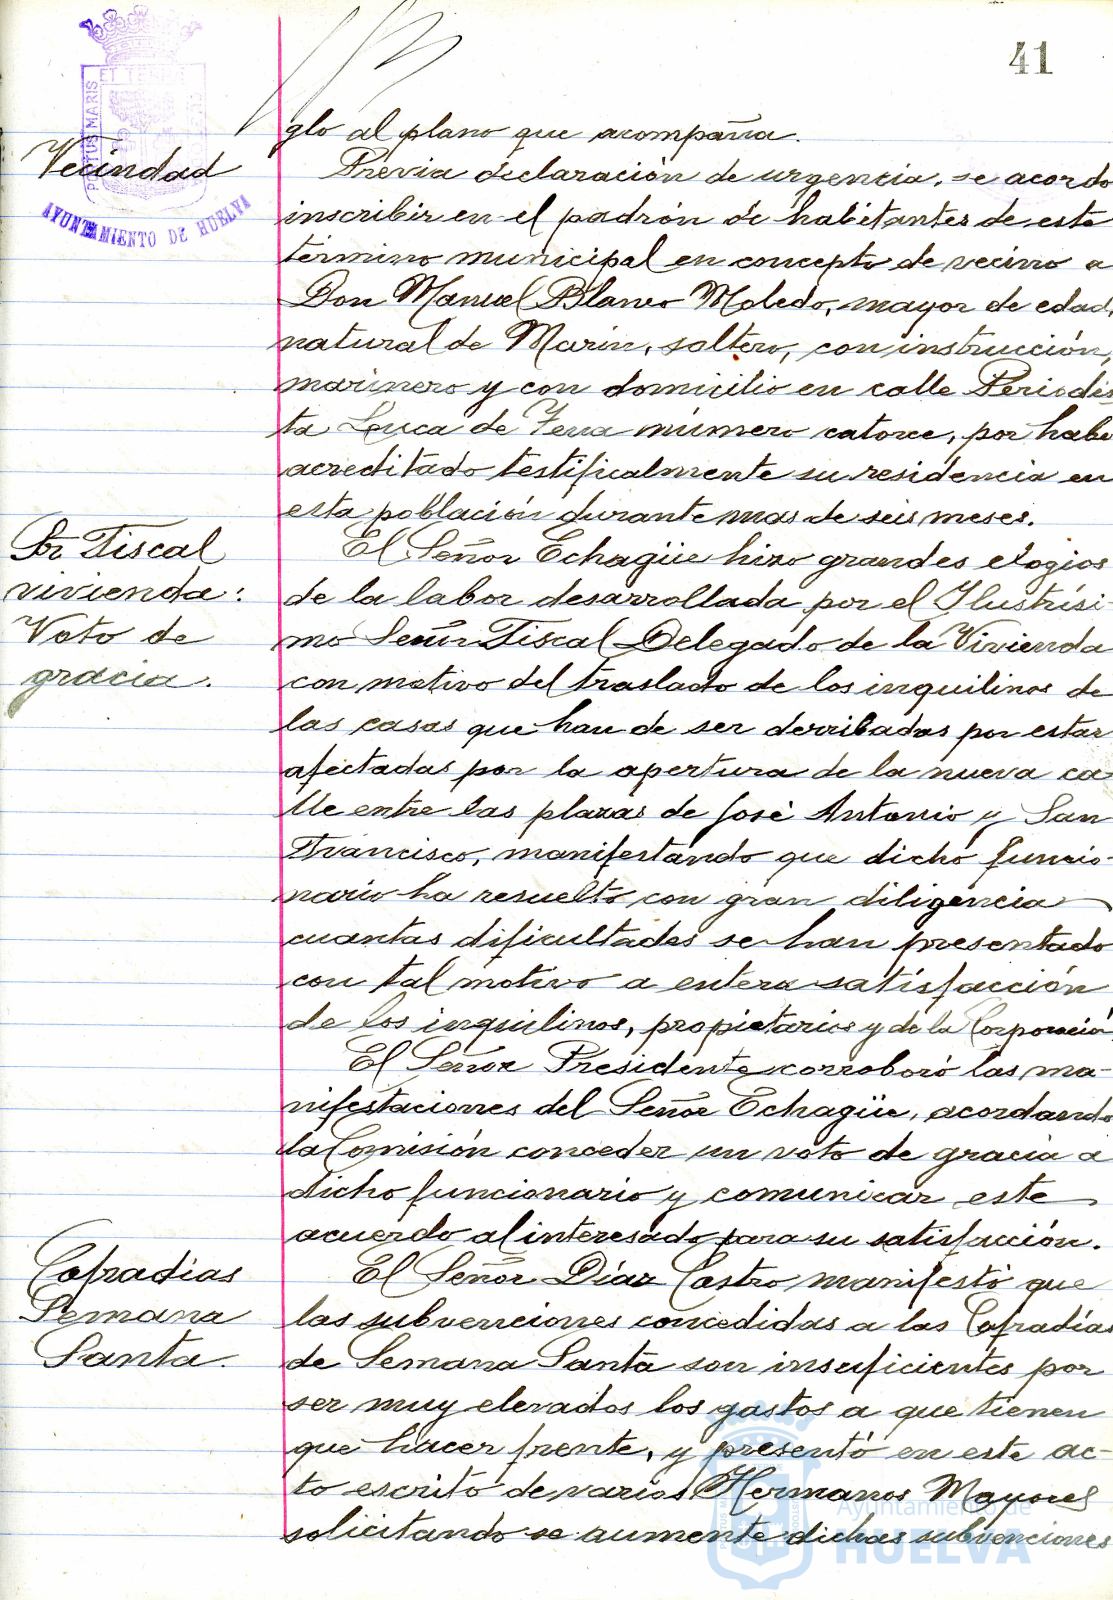 41
PORTUS MARIS ET TERRAE
AYUNTAMIENTO DE HUELVA
glo al plano que acompaña.
Vecindad
Previa declaración de urgencia, se acordo
inscribir en el padrón de habitantes de este
término municipal en concepto de vecino a
Don Manuel Blanco Moledo, mayor de edad,
natural de Marin, soltero, con instrucción,
marinero y con domicilio en calle Periodis
ta Luca de Tena número catorce, por habe
acreditado testificalmente su residencia en
esta población durante mas de seis meses.
Sr. Fiscal
vivienda:
Voto de
gracia.
El Señor Echagüe hizo grandes elogios
de la labor desarrollada por el Ilustrísi-
mo Señor Fiscal Delegado de la Vivienda
con motivo del traslado de los inquilinos de
las casas que han de ser derribadas por estar
afectadas por la apertura de la nueva ca
lle entre las plazas de José Antonio y San
Francisco, manifestando que dicho funcio-
nario ha resuelto con gran diligencia
cuantas dificultades se han presentado
con tal motivo a entera satisfacción
de los inquilinos, propietarios y de la Corporación
El Señor Presidente corroboró las ma-
nifestaciones del Señor Echagüe, acordando
la Comisión conceder un voto de gracia a
dicho funcionario y comunicar este
acuerdo al interesado para su satisfacción.
Cofradias
Semana
Santa.
El Señor Díaz Castro manifestó que
las subvenciones concedidas a las Cofradías
de Semana Santa son insuficientes por
ser muy elevados los gastos a que tienen
que hacer frente, y presentó en este ac-
to escrito de varios Hermanos Mayores
solicitando se aumente dichas subvenciones
Ayuntamiento de
HUELVA